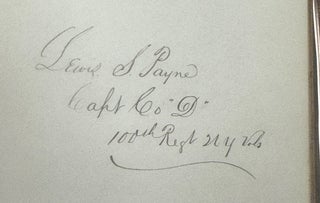 Lewis S. Payne
Capt Co "D"
100th Regt N Y Vols